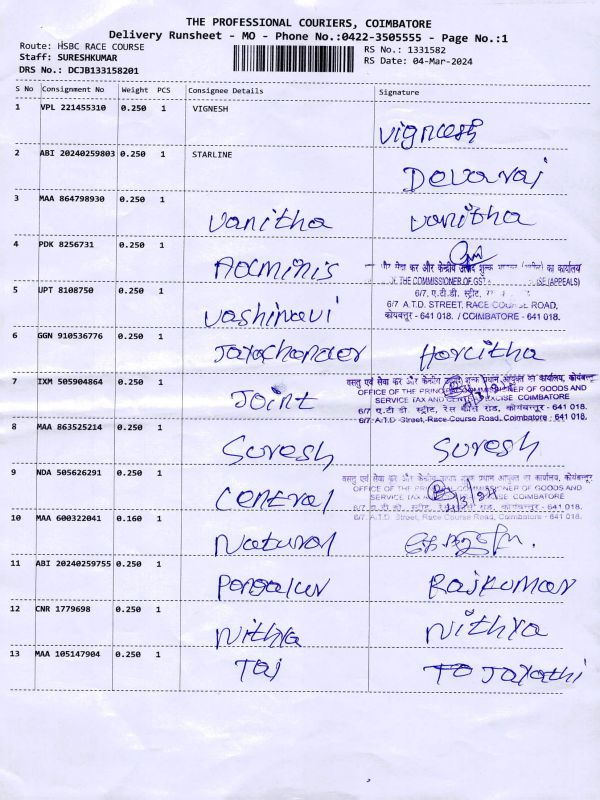 THE PROFESSIONAL COURIERS, COIMBATORE
Delivery Runsheet - MO - Phone No.:0422-3505555 - Page No.:1
Route: HSBC RACE COURSE
RS No.: 1331582
Staff: SURESHKUMAR
RS Date: 04-Mar-2024
DRS No.: DCJB133158201
S No Consignment No Weight PCS Consignee Details Signature
1 VPL 221455310 0.250 1 VIGNESH
Vignesh
2 ABI 20240259803 0.250 1 STARLINE
Devaraj
3 MAA 864798930 0.250 1
Vanitha Vanitha
4 PDK 8256731 0.250 1
और सेवा कर और केन्द्रीय उत्पाद शुल्क का कार्यालय
THE COMMISSIONER OF GST (APPEALS)
6/7, ए.टी.डी. स्ट्रीट,
6/7 A.T.D. STREET, RACE COURSE ROAD,
कोयम्बत्तूर - 641 018. / COIMBATORE - 641 018.
5 UPT 8108750 0.250 1
Vashinavi
6 GGN 910536776 0.250 1
Jayachander Haritha
7 IXM 505904864 0.250 1
Joint
वस्तु एवं सेवा कर और केन्द्रीय उत्पाद शुल्क प्रधान आयुक्त का कार्यालय, कोयंबत्तूर
OFFICE OF THE PRINCIPAL COMMISSIONER OF GOODS AND
SERVICE TAX AND CENTRAL EXCISE COIMBATORE
6/7 ए.टी डी. स्ट्रीट, रेस कोर्स रोड, कोयंबत्तूर - 641 018.
6/7, A.T.D. Street, Race Course Road, Coimbatore - 641 018.
8 MAA 863525214 0.250 1
Suresh Suresh
9 NDA 505626291 0.250 1
Central
वस्तु एवं सेवा कर और केन्द्रीय उत्पाद शुल्क प्रधान आयुक्त का कार्यालय, कोयंबत्तूर
OFFICE OF THE PRINCIPAL COMMISSIONER OF GOODS AND
SERVICE TAX AND CENTRAL EXCISE COIMBATORE
6/7 ए.टी डी. स्ट्रीट, रेस कोर्स रोड, कोयंबत्तूर - 641 018.
6/7. A.T.D. Street, Race Course Road, Coimbatore - 641 018.
10 MAA 600322041 0.160 1
Natural
11 ABI 20240259755 0.250 1
Rajkumar
12 CNR 1779698 0.250 1
Nithya Nithya
13 MAA 105147904 0.250 1
Taj Jayathi